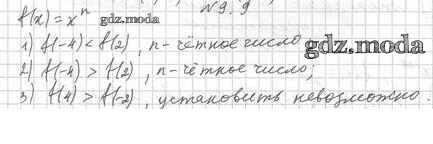 №9.9
f(x) = x^n gdz.moda
1) f(-4) < f(2), n - чётное число
gdz.moda
2) f(-4) > f(2), n - чётное число;
3) f(4) > f(-2), установить невозможно.